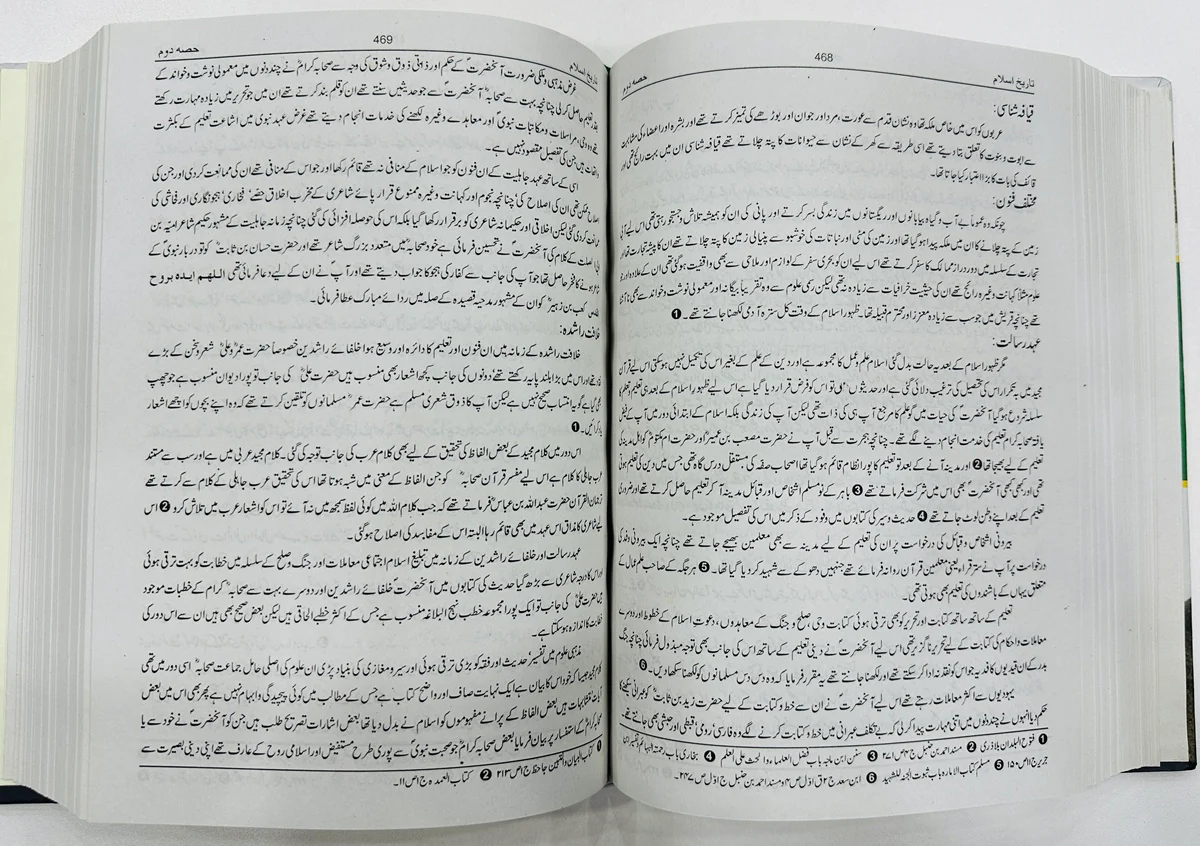 تاریخ اسلام 468 حصہ دوم
قیافہ شناسی:
عربوں کو اس میں خاص ملکہ تھا وہ نشان قدم سے عورت، مرد اور جوان اور بوڑھے کی تمیز کرتے تھے اور بشرہ اور اعضاء کی مشابہت
سے ابوت و بنوت کا تعلق بتا دیتے تھے اسی طریقہ سے کھر کے نشان سے حیوانات کا پتہ چلاتے تھے قیافہ شناسی ان میں بہت رائج تھی اور
قائف کی بات کا بڑا اعتبار کیا جاتا تھا۔
مختلف فنون:
چونکہ وہ عموماً بے آب و گیاہ بیابانوں اور ریگستانوں میں زندگی بسر کرتے اور پانی کی ان کو ہمیشہ تلاش و جستجو رہتی تھی اس لیے آبی
زمین کے پتہ چلانے کا ان میں ملکہ پیدا ہو گیا تھا اور زمین کی مٹی اور نباتات کی خوشبو سے پنیالی زمین کا پتہ چلاتے تھے ان کا پیشہ تجارت تھا اور
تجارت کے سلسلہ میں دور دراز ممالک کا سفر کرتے تھے اس لیے ان کو بحری سفر کے لوازم اور ملاحی سے بھی واقفیت ہو گئی تھی ان کے علاوہ اور جو
علوم مثلاً کہانت وغیرہ رائج تھے ان کی حیثیت خرافیات سے زیادہ نہ تھی لیکن رسمی علوم سے وہ تقریباً بیگانہ اور معمولی نوشت و خواند سے بھی ناآشنا
تھے چنانچہ قریش میں جو سب سے زیادہ معزز اور محترم قبیلہ تھا۔ ظہور اسلام کے وقت کل سترہ آدمی لکھنا جانتے تھے۔ ❶
عہد رسالت:
مگر ظہور اسلام کے بعد یہ حالت بدل گئی اسلام علم و عمل کا مجموعہ ہے اور دین کے علم کے بغیر اس کی تکمیل نہیں ہو سکتی اس لیے قرآن
مجید میں بہ تکرار اس کی تحصیل کی ترغیب دلائی گئی ہے اور حدیثوں میں تو اس کو فرض قرار دیا گیا ہے اس لیے ظہور اسلام کے بعد ہی تعلیم و تعلم کا
سلسلہ شروع ہو گیا آنحضرتؐ کی حیات میں گو علم کا مرجع آپ ہی کی ذات تھی لیکن آپ کی زندگی بلکہ اسلام کے ابتدائی دور میں آپ کے فیض
یافتہ صحابہ کرامؓ تعلیم کی خدمت انجام دینے لگے تھے۔ چنانچہ ہجرت سے قبل آپ نے حضرت مصعب بن عمیرؓ اور حضرت ام مکتومؓ کو اہل مدینہ کی
تعلیم کے لیے بھیجا تھا ❷ اور مدینہ آنے کے بعد تو تعلیم کا پورا نظام قائم ہو گیا تھا اصحاب صفہ کی مستقل درس گاہ تھی جس میں دین کی تعلیم ہوتی
تھی اور کبھی کبھی آنحضرتؐ بھی اس میں شرکت فرماتے تھے ❸ باہر کے نو مسلم اشخاص اور قبائل مدینہ آ کر تعلیم حاصل کرتے تھے اور ضروری
تعلیم کے بعد اپنے وطن لوٹ جاتے تھے ❹ حدیث و سیر کی کتابوں میں وفود کے ذکر میں اس کی تفصیل موجود ہے۔
بیرونی اشخاص و قبائل کی درخواست پر ان کی تعلیم کے لیے مدینہ سے بھی معلمین بھیجے جاتے تھے چنانچہ ایک بیرونی وفد کی
درخواست پر آپ نے ستر قراء یعنی معلمین قرآن روانہ فرمائے تھے جنہیں دھوکے سے شہید کر دیا گیا تھا۔ ❺ ہر جگہ کے صاحب علم عمال کے
متعلق یہاں کے باشندوں کی تعلیم بھی ہوتی تھی۔
تعلیم کے ساتھ ساتھ کتابت اور تحریر کو بھی ترقی ہوئی کتابت وحی صلح و جنگ کے معاہدوں، دعوت اسلام کے خطوط اور دوسرے
معاملات و احکام کی کتابت کے لیے تحریر ناگزیر تھی اس لیے آنحضرتؐ نے دینی تعلیم کے ساتھ اس کی جانب بھی توجہ مبذول فرمائی چنانچہ جنگ
بدر کے ان قیدیوں کا فدیہ جو اس کو نقد نہ ادا کر سکتے تھے اور لکھنا جانتے تھے یہ مقرر فرمایا کہ وہ دس دس مسلمانوں کو لکھنا سکھا دیں۔ ❻
یہودیوں سے اکثر معاملات رہتے تھے اس لیے آنحضرتؐ نے ان سے خط و کتابت کے لیے حضرت زید بن ثابتؓ کو عبرانی سیکھنے کا
حکم دیا انہوں نے چند دنوں میں اتنی مہارت پیدا کر لی کہ بے تکلف عبرانی میں خط و کتابت کرنے لگے وہ فارسی، رومی، قبطی اور حبشی بھی جانتے تھے۔
❶ فتوح البلدان بلاذری ❷ مسند احمد بن حنبل ج ۳ ص ۲۷۱ ❸ سنن ابن ماجہ باب فضل العلماء والحث علی العلم ❹ بخاری باب رحمۃ البہائم
❺ مسلم کتاب الامارہ باب ثبوت الجنۃ للشہید ❻ ابن سعد ج ۲ ق اول ص ۱۴ و مسند احمد بن حنبل ج اول ص ۲۴۷
469 حصہ دوم
غرض مذہبی و ملکی ضرورت آنحضرتؐ کے حکم اور ذاتی ذوق و شوق کی وجہ سے صحابہ کرامؓ نے چند دنوں میں معمولی نوشت و خواند کے
بقدر تعلیم حاصل کر لی چنانچہ بہت سے صحابہؓ آنحضرتؐ سے جو حدیثیں سنتے تھے ان کو قلم بند کرتے تھے ان میں جو تحریر میں زیادہ مہارت رکھتے
تھے وہ وحی، مراسلات و مکاتبات نبویؐ اور معاہدے وغیرہ لکھنے کی خدمات انجام دیتے تھے غرض عہد نبوی میں اشاعت تعلیم کے بکثرت
واقعات ہیں جن کی تفصیل مقصود نہیں ہے۔
اسی کے ساتھ عہد جاہلیت کے ان فنون کو جو اسلام کے منافی نہ تھے قائم رکھا اور جو اس کے منافی تھے ان کی ممانعت کر دی اور جن کی
اصلاح ممکن تھی ان کی اصلاح کی، چنانچہ نجوم اور کہانت وغیرہ ممنوع قرار پائے شاعری کے مخرب اخلاق حصے، فخاری، ہجو نگاری اور فحاشی کی
ممانعت کر دی گئی لیکن اخلاقی اور حکیمانہ شاعری کو برقرار رکھا گیا بلکہ اس کی حوصلہ افزائی کی گئی چنانچہ زمانہ جاہلیت کے مشہور حکیم شاعر امیہ بن
ابی الصلت کے کلام کی آنحضرتؐ نے تحسین فرمائی ہے خود صحابہؓ میں متعدد بزرگ شاعر تھے اور حضرت حسان بن ثابتؓ کو تو دربار نبوی کے
شاعر ہونے کا فخر حاصل تھا جو آپ کی جانب سے کفار کی ہجو کا جواب دیتے تھے اور آپ نے ان کے لیے دعا فرمائی تھی اللہم ایدہ بروح
القدس کعب بن زہیرؓ کو ان کے مشہور مدحیہ قصیدہ کے صلہ میں ردائے مبارک عطا فرمائی۔
خلافت راشدہ:
خلافت راشدہ کے زمانہ میں ان فنون اور تعلیم کا دائرہ اور وسیع ہوا خلفائے راشدین خصوصاً حضرت عمرؓ و علیؓ شعر و سخن کے بڑے
تھے اور اس میں بڑا بلند پایہ رکھتے تھے، دونوں کی جانب کچھ اشعار بھی منسوب ہیں حضرت علیؓ کی جانب تو پورا دیوان منسوب ہے جو چھپ
بھی گیا ہے گو یہ انتساب صحیح نہیں ہے لیکن آپ کا ذوق شعری مسلم ہے حضرت عمرؓ مسلمانوں کو تلقین کرتے تھے کہ وہ اپنے بچوں کو اچھے اشعار
یاد کرائیں۔ ❶
اس دور میں کلام مجید کے بعض الفاظ کی تحقیق کے لیے بھی کلام عرب کی جانب توجہ کی گئی۔ کلام مجید عربی میں ہے اور سب سے مستند
عرب جاہلی کا کلام ہے اس لیے مفسر قرآن صحابہؓ کو جن الفاظ کے معنی میں شبہ ہوتا تھا اس کی تحقیق عرب جاہلی کے کلام سے کرتے تھے
ترجمان القرآن حضرت عبداللہ بن عباسؓ فرماتے تھے کہ جب کلام اللہ میں کوئی لفظ سمجھ میں نہ آئے تو اس کو اشعار عرب میں تلاش کرو ❷ اس
لیے شاعری کا مذاق اس عہد میں بھی قائم رہا البتہ اس کے مفاسد کی اصلاح ہو گئی۔
عہد رسالت اور خلفائے راشدین کے زمانہ میں تبلیغ اسلام اجتماعی معاملات اور جنگ و صلح کے سلسلہ میں خطابت کو بہت ترقی ہوئی
اور اس کا درجہ شاعری سے بڑھ گیا حدیث کی کتابوں میں آنحضرتؐ خلفائے راشدین اور دوسرے بہت سے صحابہؓ کرام کے خطبات موجود
ہیں حضرت علیؓ کی جانب تو ایک پورا مجموعہ خطب نہج البلاغہ منسوب ہے جس کے اکثر خطبے الحاقی ہیں لیکن بعض صحیح بھی ہیں ان سے اس دور کی
خطابت کا اندازہ ہو سکتا ہے۔
مذہبی علوم میں تفسیر، حدیث اور فقہ کو بڑی ترقی ہوئی اور سیر و مغازی کی بنیاد پڑی ان علوم کی اصلی حامل جماعت صحابہؓ اسی دور میں تھی
کلام مجید جیسا کہ خود اس کا بیان ہے ایک نہایت صاف اور واضح کتاب ہے جس کے مطالب میں کوئی پیچیدگی و ابہام نہیں ہے پھر بھی اس میں بعض
آیات متشابہات ہیں بعض الفاظ کے پرانے مفہوموں کو اسلام نے بدل دیا تھا بعض اشارات تصریح طلب ہیں جن کو آنحضرتؐ نے خود سے یا
صحابہ کرامؓ کے استفسار پر بیان فرمایا بعض صحابہ کرامؓ جو صحبت نبویؐ سے پوری طرح مستفیض اور اسلامی روح کے عارف تھے اپنی دینی بصیرت سے
❶ کتاب البیان والتبیین جاحظ ج ۱ ص ۲۱۳ ❷ کتاب العمدہ ج ۱ ص ۱۱۔